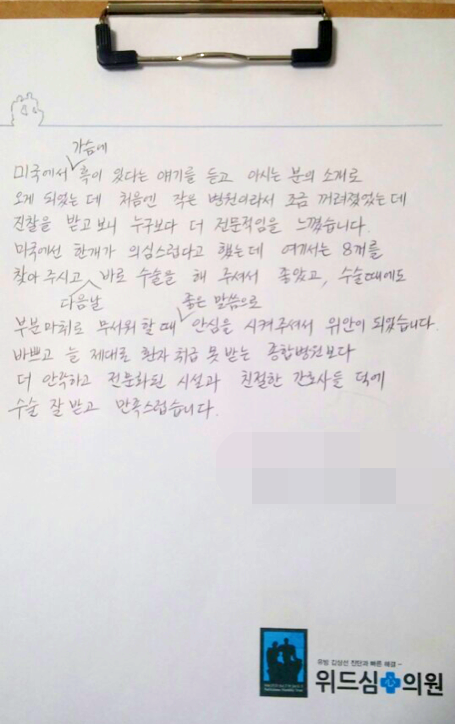 가슴에
미국에서 혹이 있다는 얘기를 듣고 아시는 분의 소개로
오게 되었는데 처음엔 작은 병원이라서 조금 꺼려졌었는데
진찰을 받고보니 누구보다 더 전문적임을 느꼈습니다.
미국에선 한개가 의심스럽다고 했는데 여기서는 8개를
찾아 주시고 바로 수술을 해 주셔서 좋았고, 수술때에도
다음날 좋은 말씀으로
부분마취로 무서워 할 때 안심을 시켜주셔서 위안이 되었습니다.
바쁘고 늘 제대로 환자 취급 못 받는 종합병원보다
더 안락하고 전문화된 시설과 친절한 간호사들 덕에
수술 잘 받고 만족스럽습니다.
유방 갑상선 진단과 빠른 해결
위드심의원